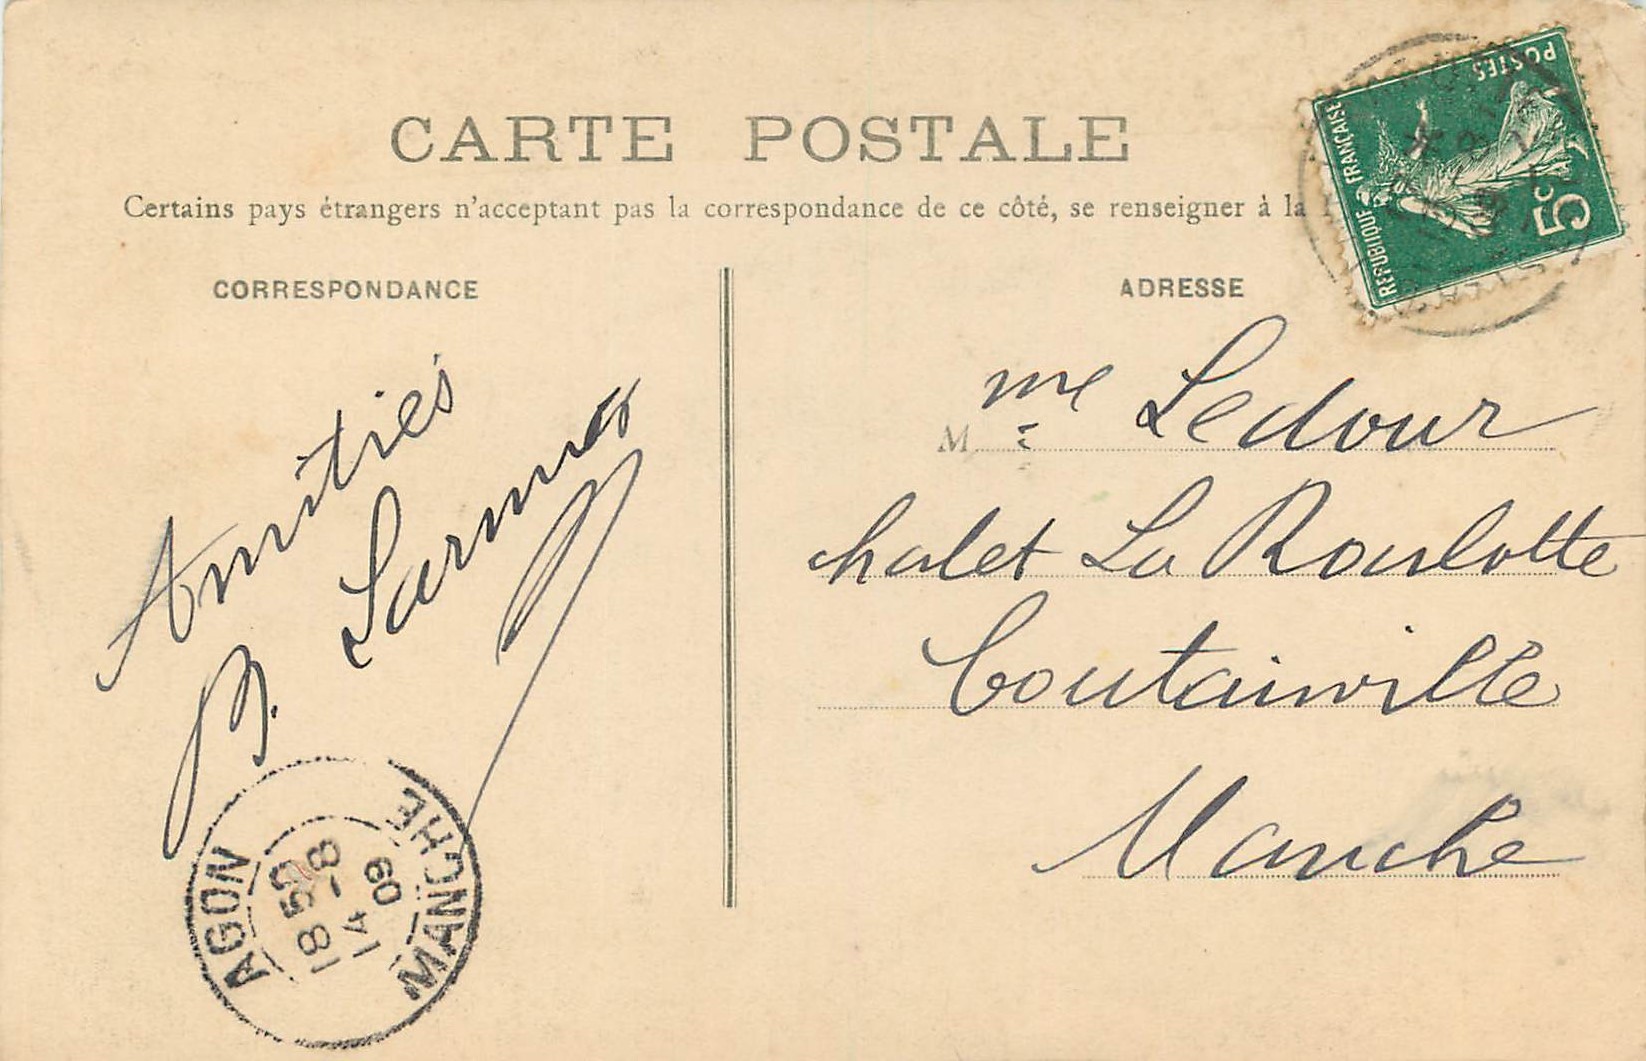 CARTE POSTALE
Certains pays étrangers n'acceptant pas la correspondance de ce côté, se renseigner à la
CORRESPONDANCE
Amitiés
B.
AGON
MANCHE
18 50
14 -8
09
ADRESSE
REPUBLIQUE FRANÇAISE
POSTES
5c
M me Ledour
chalet La Roulotte
Coutainville
Manche